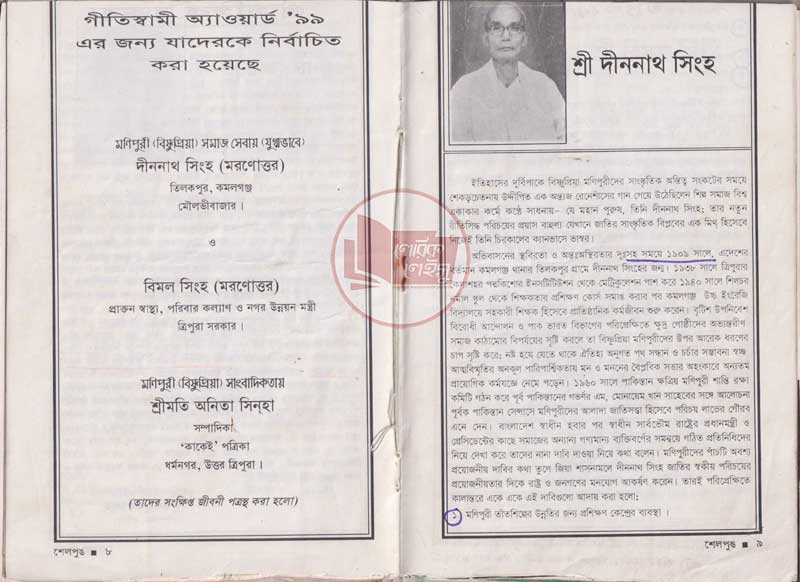 গীতিস্বামী অ্যাওয়ার্ড '৯৯
এর জন্য যাদেরকে নির্বাচিত
করা হয়েছে
মণিপুরী (বিষ্ণুপ্রিয়া) সমাজ সেবায় (যুগ্মভাবে)
দীননাথ সিংহ (মরণোত্তর)
তিলকপুর, কমলগঞ্জ
মৌলভীবাজার।
ও
বিমল সিংহ (মরণোত্তর)
প্রাক্তন স্বাস্থ্য, পরিবার কল্যাণ ও নগর উন্নয়ন মন্ত্রী
ত্রিপুরা সরকার।
মণিপুরী (বিষ্ণুপ্রিয়া) সাংবাদিকতায়
শ্রীমতি অনিতা সিনহা
সম্পাদিকা
'কাকেই' পত্রিকা
ধর্মনগর, উত্তর ত্রিপুরা।
(তাদের সংক্ষিপ্ত জীবনী পত্রস্থ করা হলো)
শেলপুঙ ■ ৮
শ্রী দীননাথ সিংহ
ইতিহাসের দুর্বিপাকে বিষ্ণুপ্রিয়া মণিপুরীদের সাংস্কৃতিক অস্তিত্ব সংকটের সময়ে
শেকড়চেতনায় উদ্দীপিত এক অন্ত্যজ রেনেসাঁসের গান গেয়ে উঠেছিলেন শিল্প সমাজ বিশ্ব
একাকার কর্মে কণ্ঠে সাধনায়- যে মহান পুরুষ, তিনি দীননাথ সিংহ; তার নতুন
রীতিসিদ্ধ পরিচয়ের প্রয়াস বাহুল্য যেখানে জাতির সাংস্কৃতিক বিপ্লবের এক মিথ্ হিসেবে
নিজেই তিনি চিরকালের ক্যানভাসে ভাস্বর।
অতিবাসনের স্থবিরতা ও অন্তঃঅস্থিরতার দুঃসহ সময়ে ১৯০৯ সালে, এদেশের
বর্তমান কমলগঞ্জ থানার তিলকপুর গ্রামে দীননাথ সিংহের জন্ম। ১৯৩৮ সালে ত্রিপুরার
কৈলাশহর পদ্মকিশোর ইনসটিটিউশন থেকে মেট্রিকুলেশন পাশ করে ১৯৪০ সালে শিলচর
নর্মাল স্কুল থেকে শিক্ষকতার প্রশিক্ষণ কোর্স সমাপ্ত করার পর কমলগঞ্জ উচ্চ ইংরেজি
বিদ্যালয়ে সহকারী শিক্ষক হিসেবে প্রাতিষ্ঠানিক কর্মজীবন শুরু করেন। বৃটিশ উপনিবেশ
বিরোধী আন্দোলন ও পাক ভারত বিভাগের পরিপ্রেক্ষিতে ক্ষুদ্র গোষ্ঠীদের অভ্যন্তরীণ
সমাজ কাঠামোর বিপর্যয়ের সৃষ্টি করলে তা বিষ্ণুপ্রিয়া মণিপুরীদের উপর আরেক ধরণের
চাপ সৃষ্টি করে; নষ্ট হয়ে যেতে থাকে ঐতিহ্য অনুগত পথ সন্ধান ও চর্চার সম্ভাবনা স্বচ্ছ
আত্মবিস্মৃতির অনকূল পারিপার্শ্বিকতায় মন ও মননের বৈপ্লবিক সত্তার অহংকারে অন্যতম
প্রায়োগিক কর্মযজ্ঞে নেমে পড়েন। ১৯৬০ সালে পাকিস্তান ক্ষত্রিয় মণিপুরী শান্তি রক্ষা
কমিটি গঠন করে পূর্ব পাকিস্তানের গভর্ণর এম, মোনায়েম খান সাহেবের সঙ্গে আলোচনা
পূর্বক পাকিস্তান সেন্সাসে মণিপুরীদের আলাদা জাতিসত্তা হিসেবে পরিচয় লাভের গৌরব
এনে দেন। বাংলাদেশ স্বাধীন হবার পর স্বাধীন সার্বভৌম রাষ্ট্রের প্রধানমন্ত্রী ও
প্রেসিডেন্টের কাছে সমাজের অন্যান্য গণ্যমান্য ব্যক্তিবর্গের সমন্বয়ে গঠিত প্রতিনিধিদের
নিয়ে দেখা করে তাদের নানা দাবি দাওয়া নিয়ে কথা বলেন। মণিপুরীদের পাঁচটি অবশ্য
প্রয়োজনীয় দাবির কথা তুলে জিয়া শাসনামলে দীননাথ সিংহ জাতির স্বকীয় পরিচয়ের
প্রয়োজনীয়তার দিকে রাষ্ট্র ও জনগণের মনযোগ আকর্ষণ করেন। তারই পরিপ্রেক্ষিতে
কালান্তরে একে একে এই দাবিগুলো আদায় করা হলো:
১ মণিপুরী তাঁতশিল্পের উন্নতির জন্য প্রশিক্ষণ কেন্দ্রের ব্যবস্থা।
শেলপুঙ ■ ৯